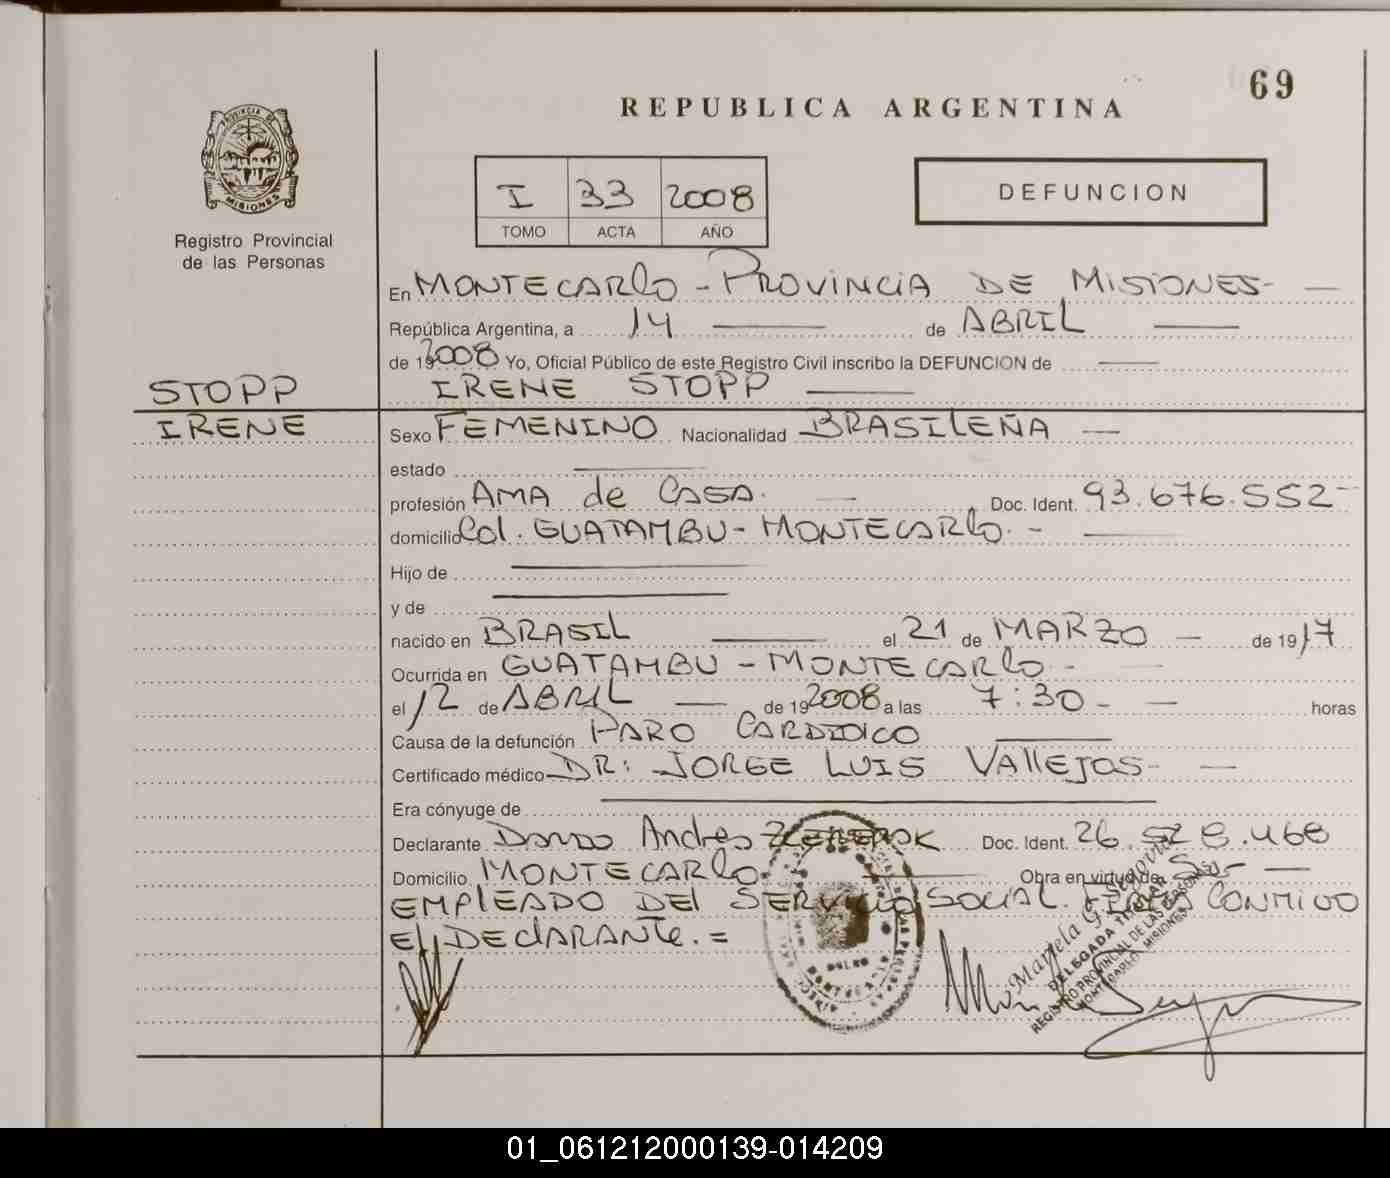 69
REPUBLICA ARGENTINA
PROVINCIA DE
MISIONES
Registro Provincial
de las Personas
I 33 2008
TOMO ACTA AÑO
DEFUNCION
En MONTECARLO - PROVINCIA DE MISIONES -
República Argentina, a 14 de ABRIL
de 19 2008 Yo, Oficial Público de este Registro Civil inscribo la DEFUNCION de
STOPP IRENE STOPP
IRENE Sexo FEMENINO Nacionalidad BRASILEÑA
estado
profesión AMA de CASA. Doc. Ident. 93.676.552
domicilio Col. GUATAMBU - MONTECARLO. -
Hijo de
y de
nacido en BRASIL el 21 de MARZO de 1917
Ocurrida en GUATAMBU - MONTECARLO -
el 12 de ABRIL de 19 2008 a las 7:30 - horas
Causa de la defunción PARO CARDIACO
Certificado médico DR: JORGE LUIS VALLEJOS -
Era cónyuge de
Declarante Andres Doc. Ident. 26.528.468
Domicilio MONTECARLO. Obra en virtud de
EMPLEADO DEL SERVICIO SOCIAL. CONMIGO
EL DECLARANTE. =
Mariela G. Segovia
DELEGADA TITULAR
REGISTRO PROVINCIAL DE LAS PERSONAS
MONTECARLO MISIONES
01_061212000139-014209